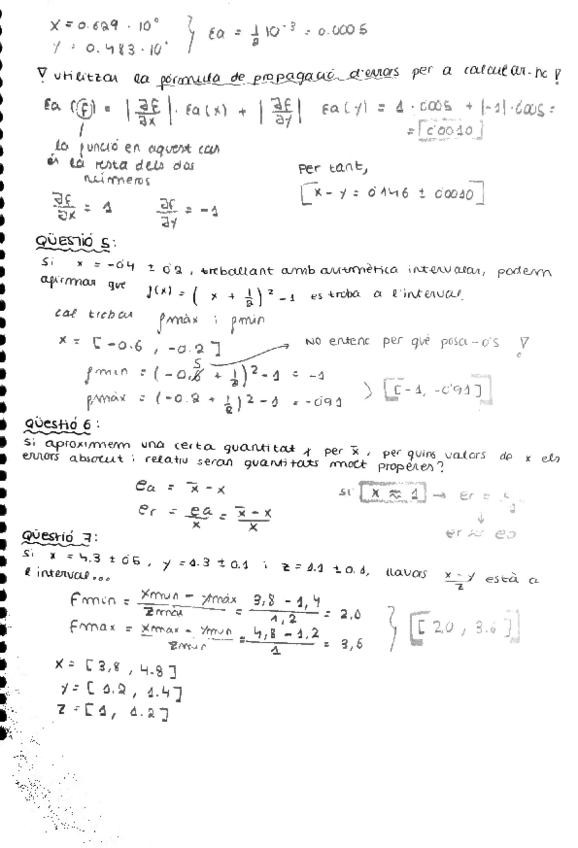 x = 0.629 · 10°
y = 0.483 · 10° } Ea = 1/2 10⁻³ = 0.0005
∇ utilitzar la fórmula de propagació d'errors per a calcular-ho !
Ea (f) = |∂f/∂x| · Ea(x) + |∂f/∂y| Ea(y) = 1 · 0005 + |-1| · 0005 =
= [0'0010]
la funció en aquest cas
és la resta dels dos
números
per tant,
[x - y = 0'146 ± 0'0010]
∂f/∂x = 1 ∂f/∂y = -1
QÜESTIÓ 5:
Si x = -0'4 ± 0'2, treballant amb aritmètica intervalar, podem
afirmar que f(x) = (x + 1/2)² - 1 es troba a l'interval
cal trobar fmàx i fmin
x = [-0.6, -0.2] → No entenc per què posa -0'5 !
fmin = (-0.5 + 1/2)² - 1 = -1
fmàx = (-0.2 + 1/2)² - 1 = -0'91 } [[-1, -0'91]]
QÜESTIÓ 6:
Si aproximem una certa quantitat x per x̄, per quins valors de x els
errors absolut i relatiu seran quantitats molt properes?
ea = x̄ - x si [x ≈ 1] → er =
er = ea/x = x̄ - x/x ↓
er ≈ ea
QÜESTIÓ 7:
Si x = 4.3 ± 0.5, y = 1.3 ± 0.1 i z = 1.1 ± 0.1, llavors x-y/z està a
l'interval...
Fmin = xmin - ymàx/zmàx = 3,8 - 1,4/1,2 = 2,0
Fmax = xmax - ymin/zmin = 4,8 - 1,2/1 = 3,6 } [[2.0, 3.6]]
x = [3,8, 4.8]
y = [1.2, 1.4]
z = [1, 1.2]